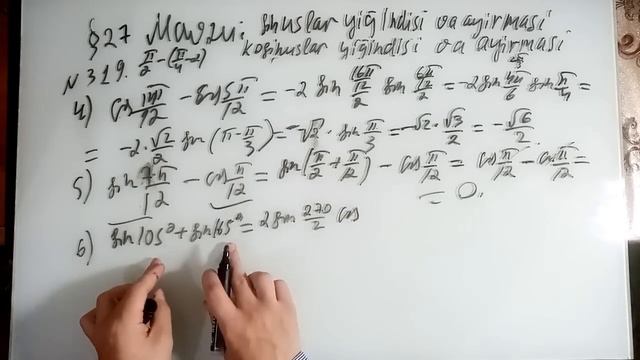 §27 Mavzu: Sinuslar yig'indisi va ayirmasi
kosinuslar yig'indisi va ayirmasi
N319. π/2-(π/4-α)
4) cos 11π/12 - cos 5π/12 = -2 sin (16π/12)/2 sin (6π/12)/2 = -2 sin 4π/6 sin π/4 =
= -2·√2/2 sin(π-π/3) = -√2·sin π/3 = -√2·√3/2 = -√6/2.
5) sin 7π/12 - cos π/12 = sin(π/2+π/12) - cos π/12 = cos π/12 - cos π/12 =
= 0.
6) sin105°+sin165°=2sin 270/2 cos